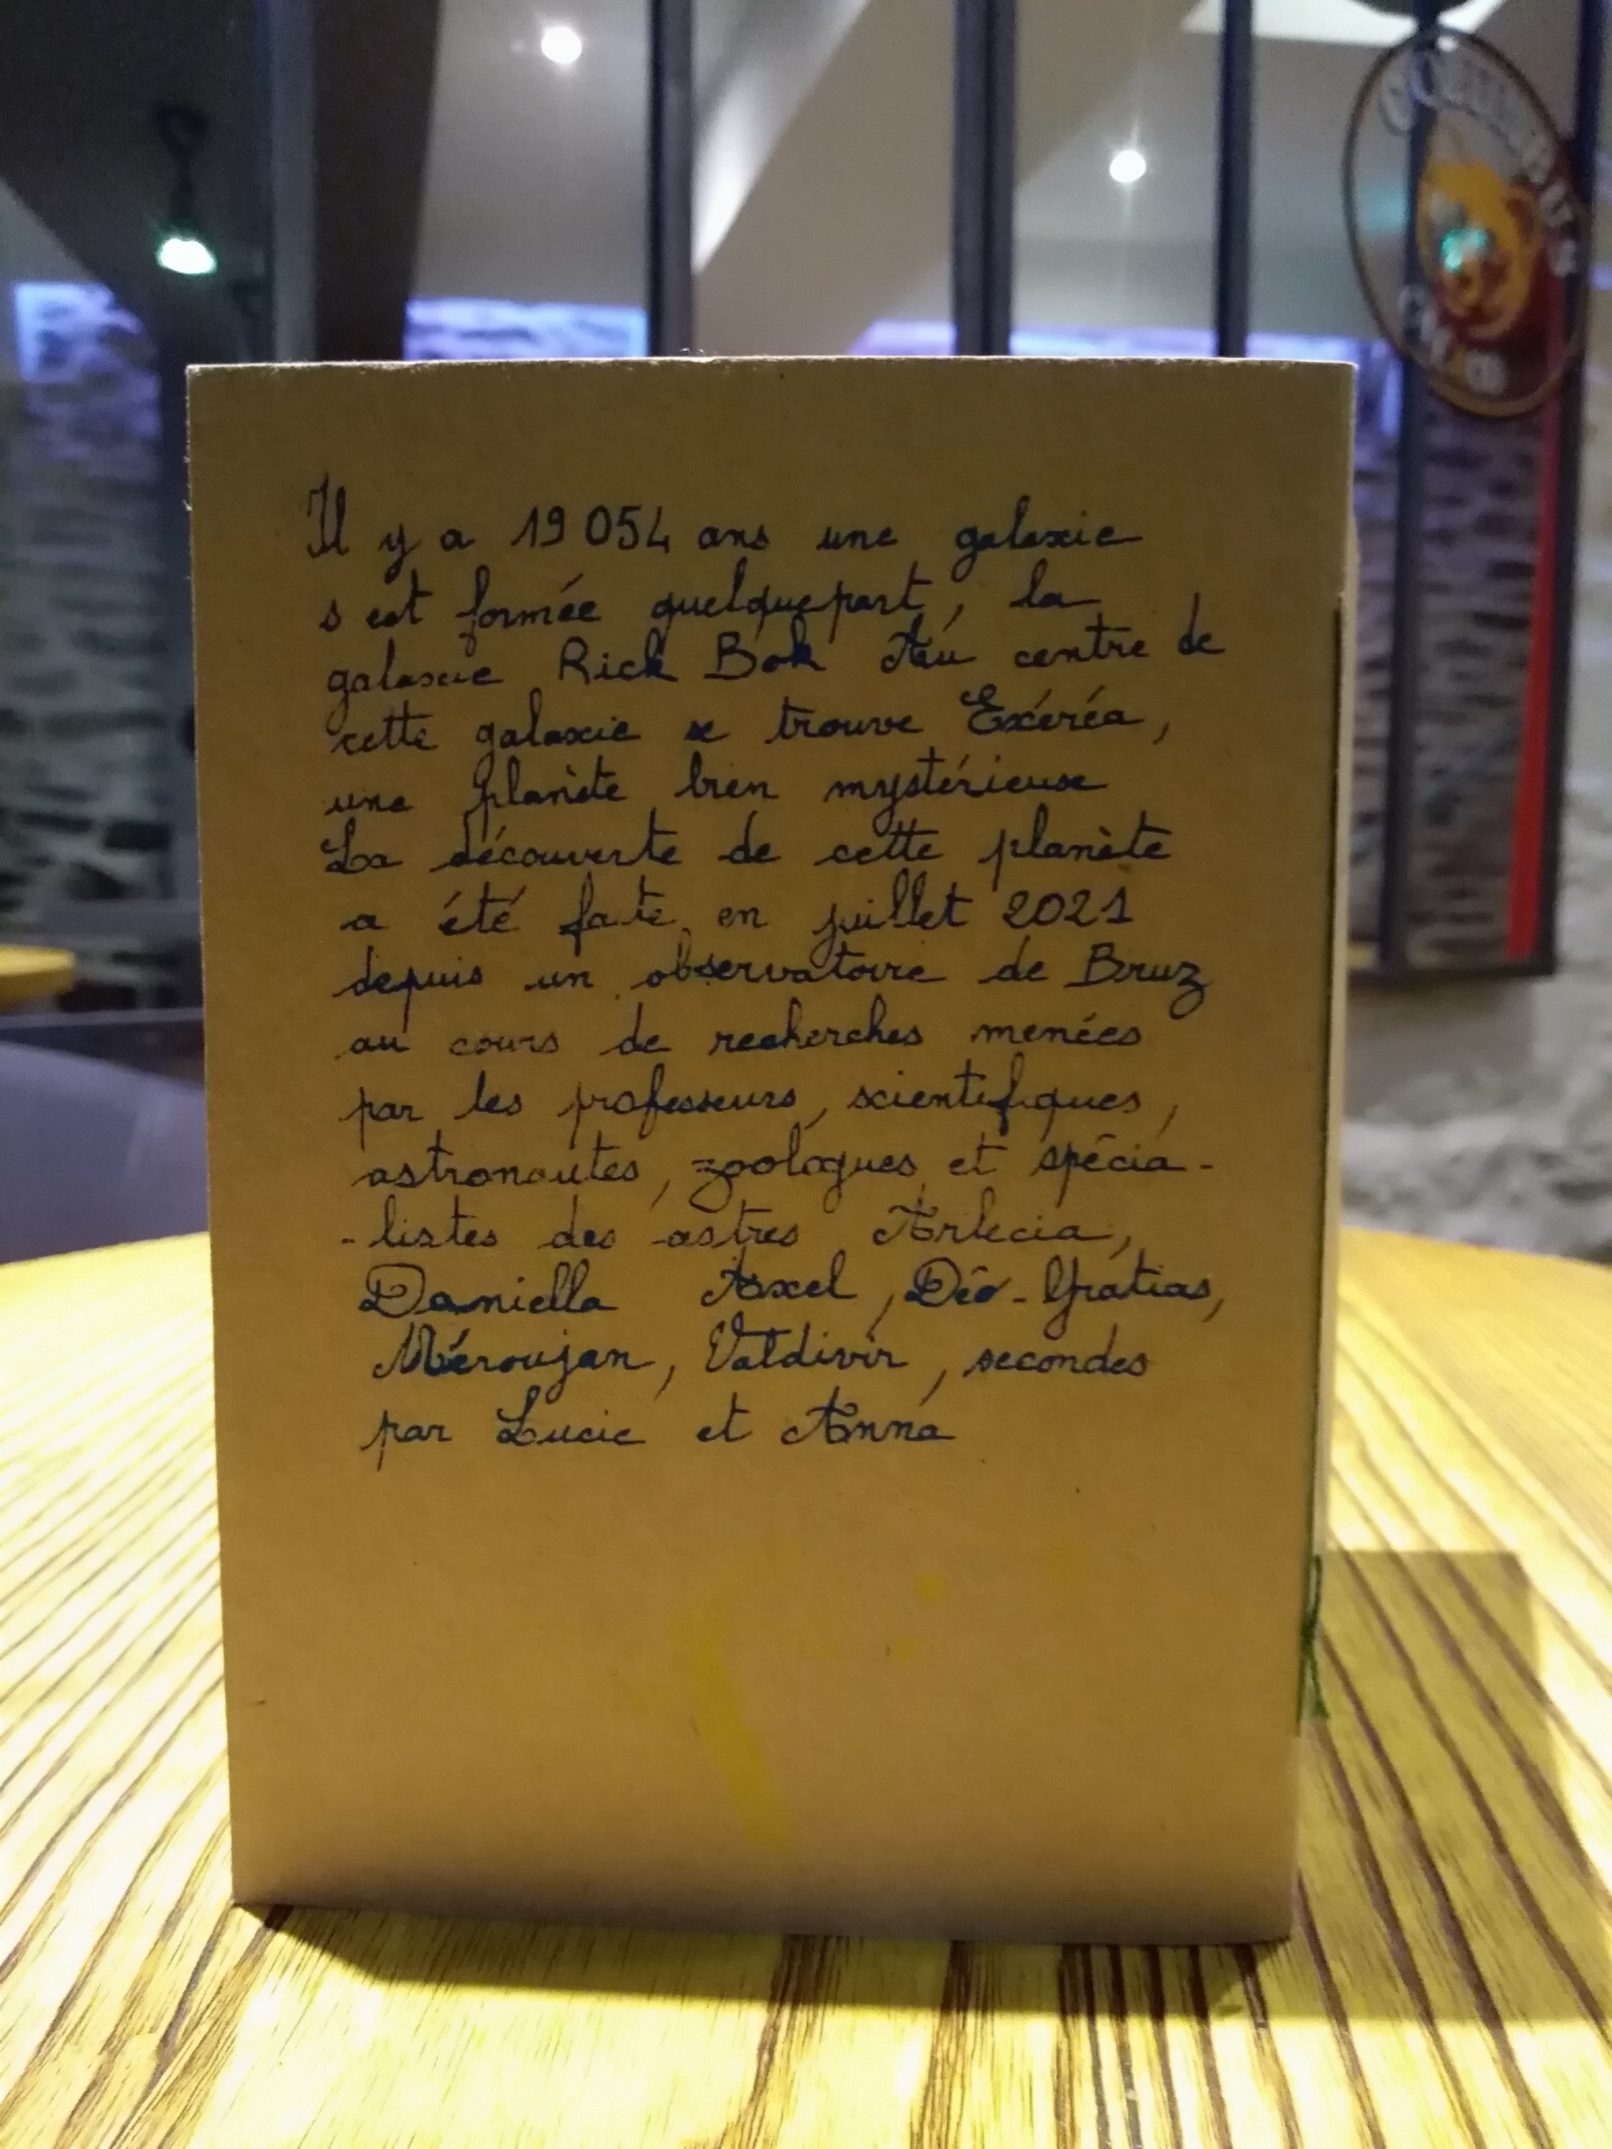 Il y a 19 054 ans une galaxie
s est formée quelque part, la
galaxie Rick Bok Au centre de
cette galaxie se trouve Exéréa,
une planète bien mystérieuse
La découverte de cette planète
a été faite en juillet 2021
depuis un observatoire de Bruz
au cours de recherches menées
par les professeurs, scientifiques,
astronautes, zoologues et spécia-
-listes des astres Arlecia,
Daniella Axel, Déo-Gratias,
Méroujan, Valdivir, secondes
par Lucie et Anna